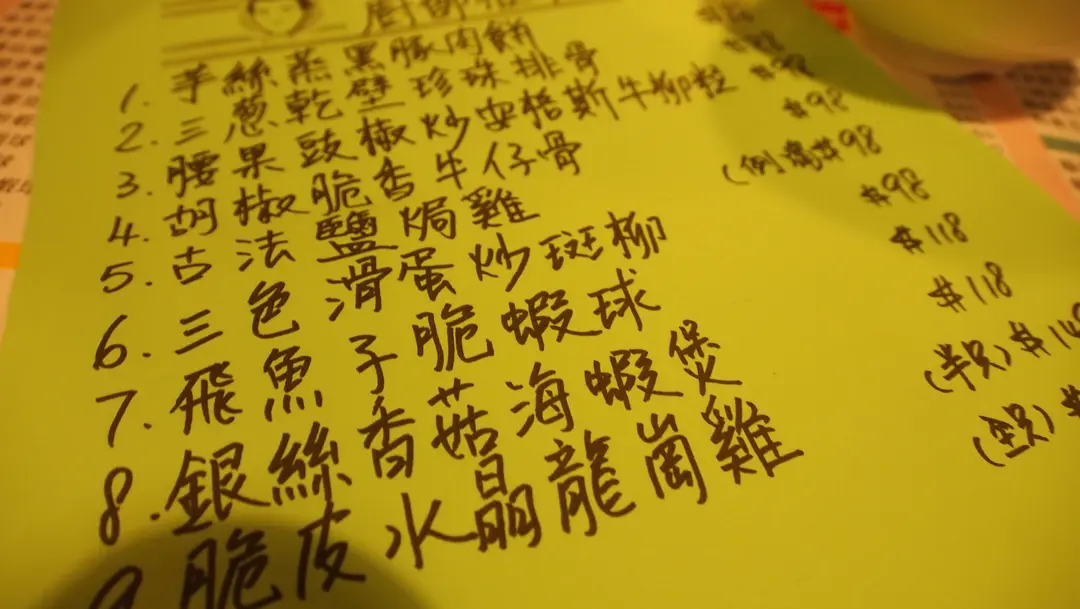 1. 芋絲蒸黑豚肉餅
2. 三葱乾壁珍珠排骨
3. 腰果豉椒炒安格斯牛柳粒 $98
4. 胡椒脆香牛仔骨 $98
5. 古法鹽焗雞 $98
6. 三色滑蛋炒斑柳 $98
7. 飛魚子脆蝦球 $118
8. 銀絲香菇海蝦煲 $118
9 脆皮水晶龍崗雞 (半只) $14
(全只) $